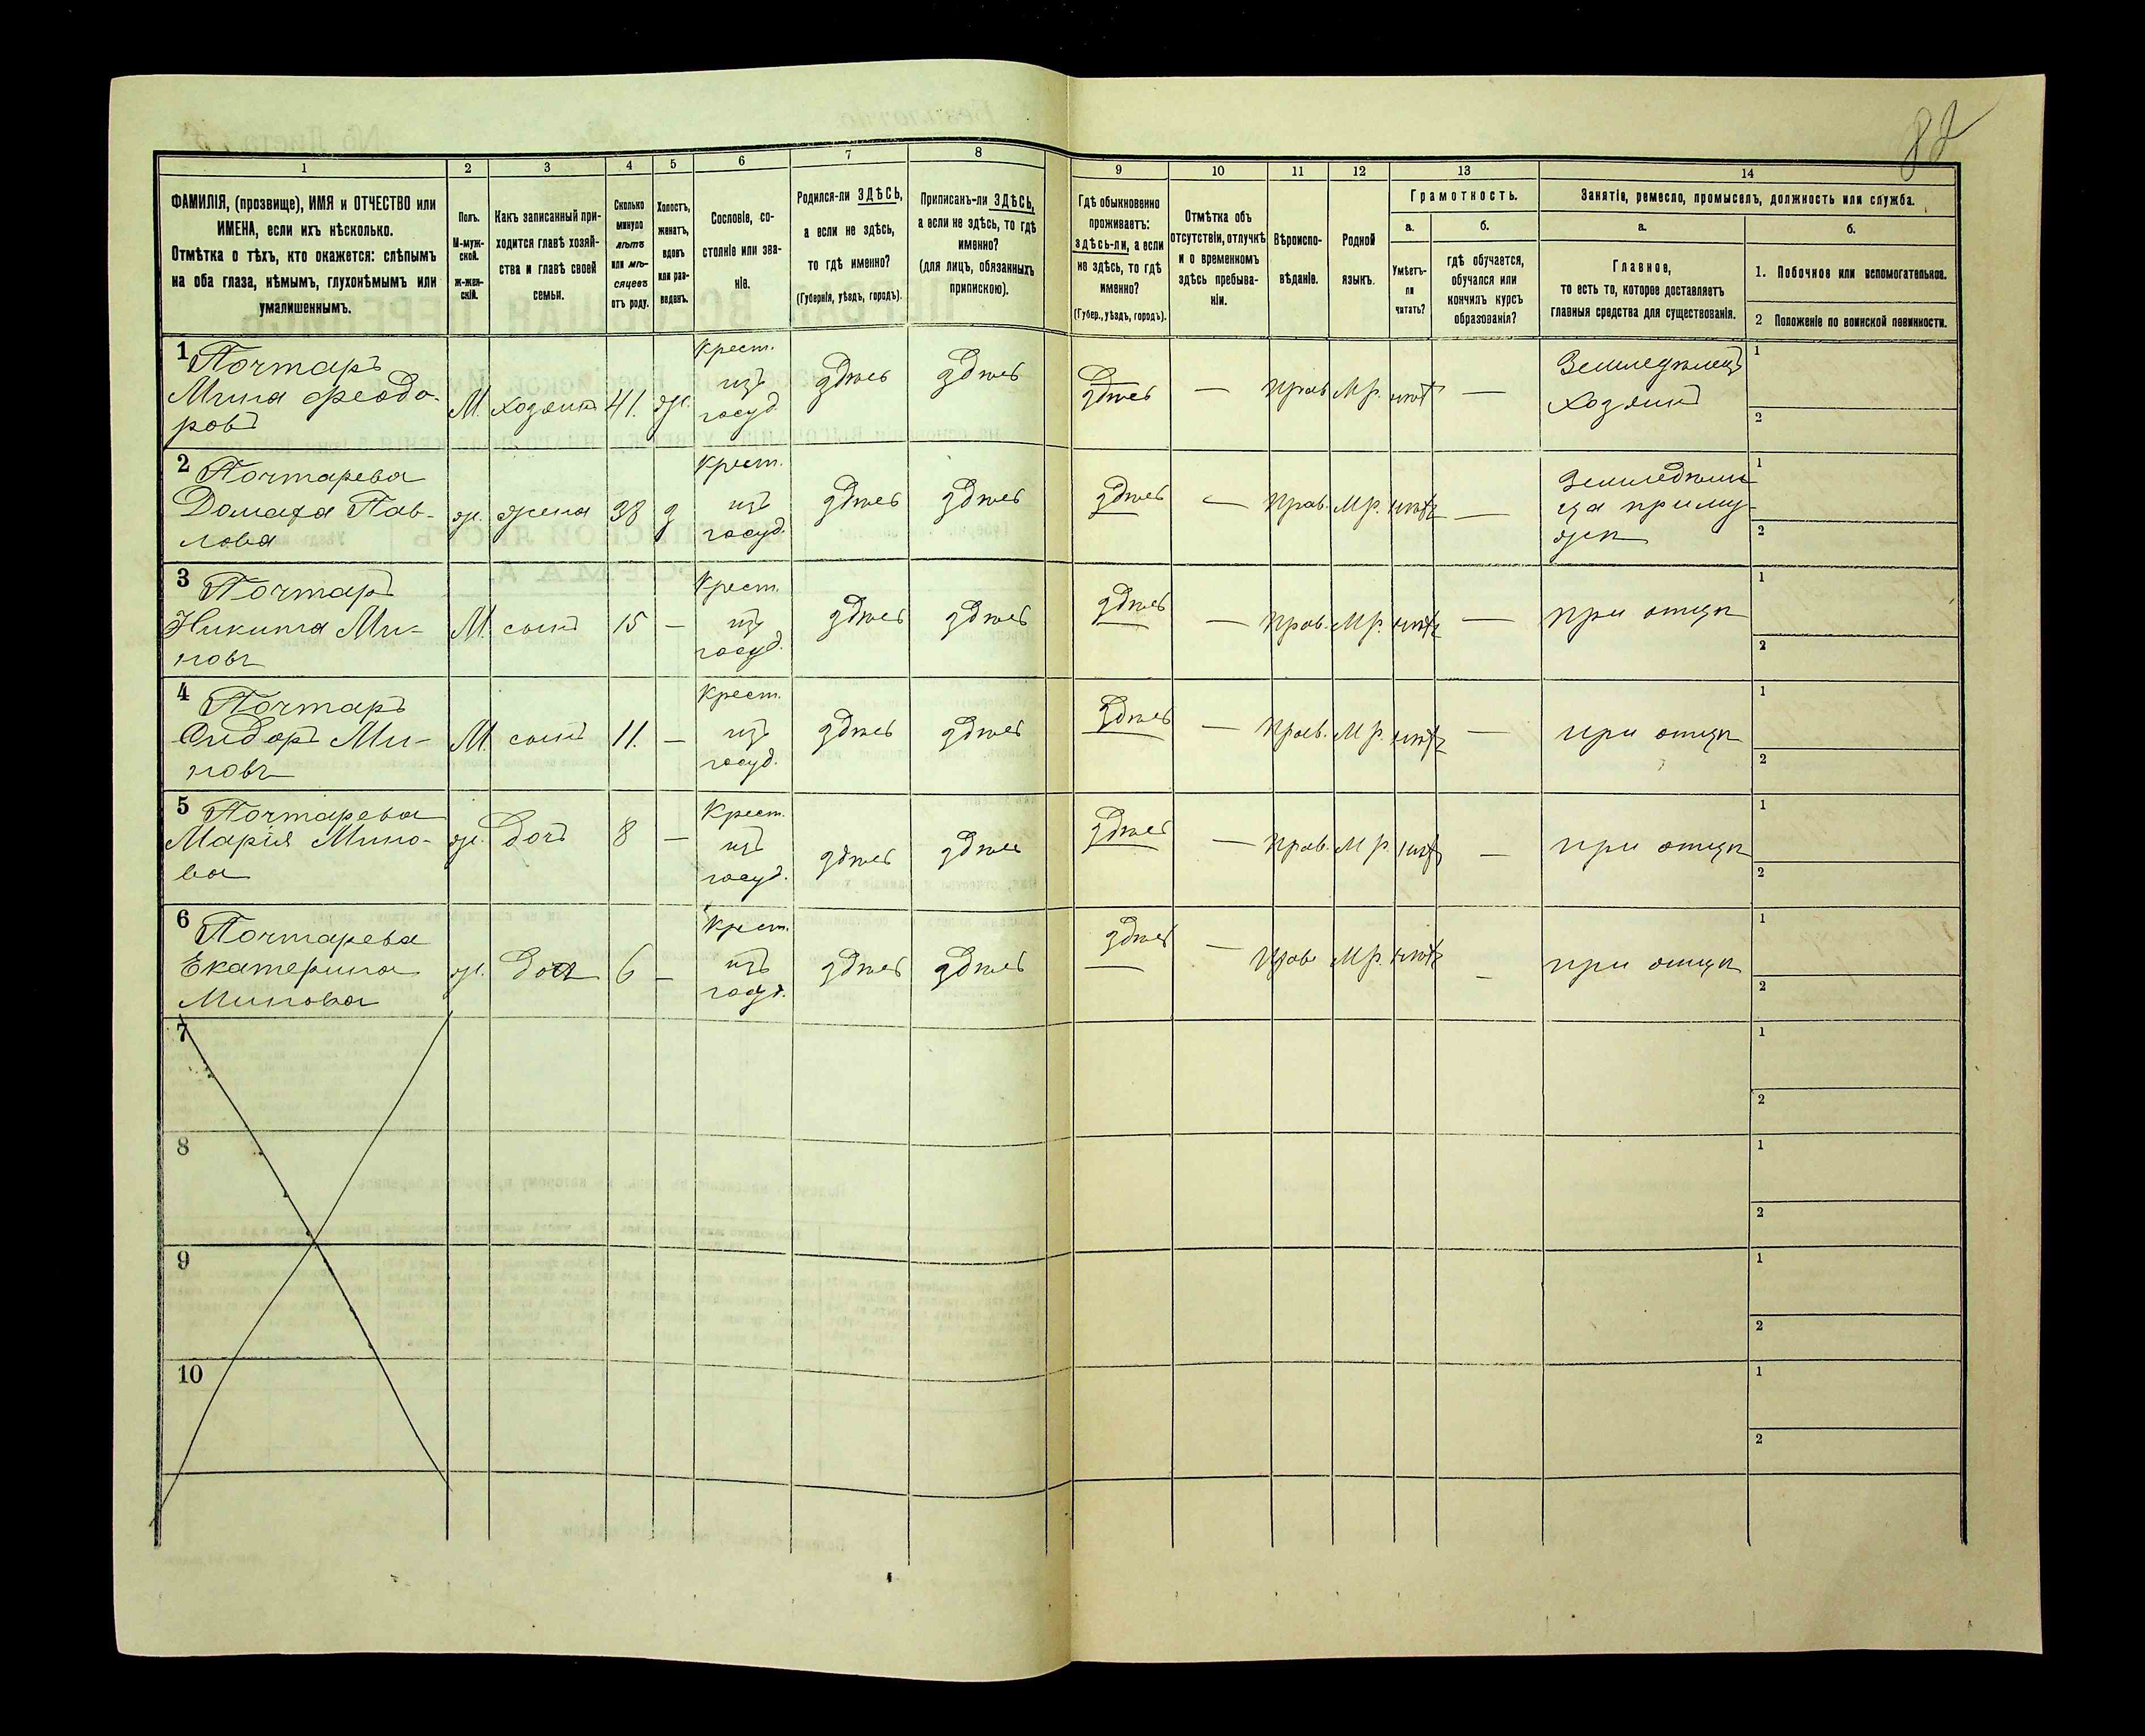 82
1
2
3
4
5
6
7
8
9
10
11
12
13
14
ФАМИЛІЯ, (прозвище), ИМЯ и ОТЧЕСТВО или
ИМЕНА, если ихъ нѣсколько.
Отмѣтка о тѣхъ, кто окажется: слѣпымъ
на оба глаза, нѣмымъ, глухонѣмымъ или
умалишеннымъ.
Полъ.
М-муж-
ской.
Ж-жен-
скій.
Какъ записанный при-
ходится главѣ хозяй-
ства и главѣ своей
семьи.
Сколько
минуло
лѣтъ
или мѣ-
сяцевъ
отъ роду.
Холостъ,
женатъ,
вдовъ
или раз-
веденъ.
Сословіе, со-
стояніе или зва-
ніе.
Родился-ли ЗДѢСЬ,
а если не здѣсь,
то гдѣ именно?
(Губернія, уѣздъ, городъ).
Приписанъ-ли ЗДѢСЬ,
а если не здѣсь, то гдѣ
именно?
(для лицъ, обязанныхъ
припискою).
Гдѣ обыкновенно
проживаетъ:
здѣсь-ли, а если
не здѣсь, то гдѣ
именно?
(Губер., уѣздъ, городъ).
Отмѣтка объ
отсутствіи, отлучкѣ
и о временномъ
здѣсь пребыва-
ніи.
Вѣроиспо-
вѣданіе.
Родной
языкъ.
Грамотность.
а.
Умѣетъ-
ли
читать?
б.
гдѣ обучается,
обучался или
кончилъ курсъ
образованія?
Занятія, ремесло, промыселъ, должность или служба.
а.
Главное,
то есть то, которое доставляетъ
главныя средства для существованія.
б.
1. Побочное или вспомогательное.
2 Положеніе по воинской повинности.
1
Почтаръ
Мина Феодо-
ровъ
М. хозяинъ 41. ж.
Крест.
изъ
госуд.
здѣсь здѣсь здѣсь — Прав. Мр. нѣтъ —
Земледѣлецъ
Хозяинъ
1
2
2
Почтарева
Домаха Пав-
лова
ж. жена 38 з
Крест.
изъ
госуд.
здѣсь здѣсь здѣсь — Прав. Мр. нѣтъ —
Земледѣли
ца при му-
жѣ
1
2
3
Почтаръ
Никита Ми-
новъ
М. сынъ 15 —
Крест.
изъ
госуд.
здѣсь здѣсь здѣсь — Прав. Мр. нѣтъ —
при отцѣ
1
2
4
Почтаръ
Сидоръ Ми-
новъ
М. сынъ 11. —
Крест.
изъ
госуд.
здѣсь здѣсь здѣсь — Прав. Мр. нѣтъ —
при отцѣ
1
2
5
Почтарева
Марія Мино-
ва
ж. дочь 8 —
Крест.
изъ
госуд.
здѣсь здѣсь здѣсь — Прав. Мр. нѣтъ —
при отцѣ
1
2
6
Почтарева
Екатерина
Минова
ж. дочь 6 —
Крест.
изъ
госуд.
здѣсь здѣсь здѣсь — Прав. Мр. нѣтъ —
при отцѣ
1
2
7
1
2
8
1
2
9
1
2
10
1
2